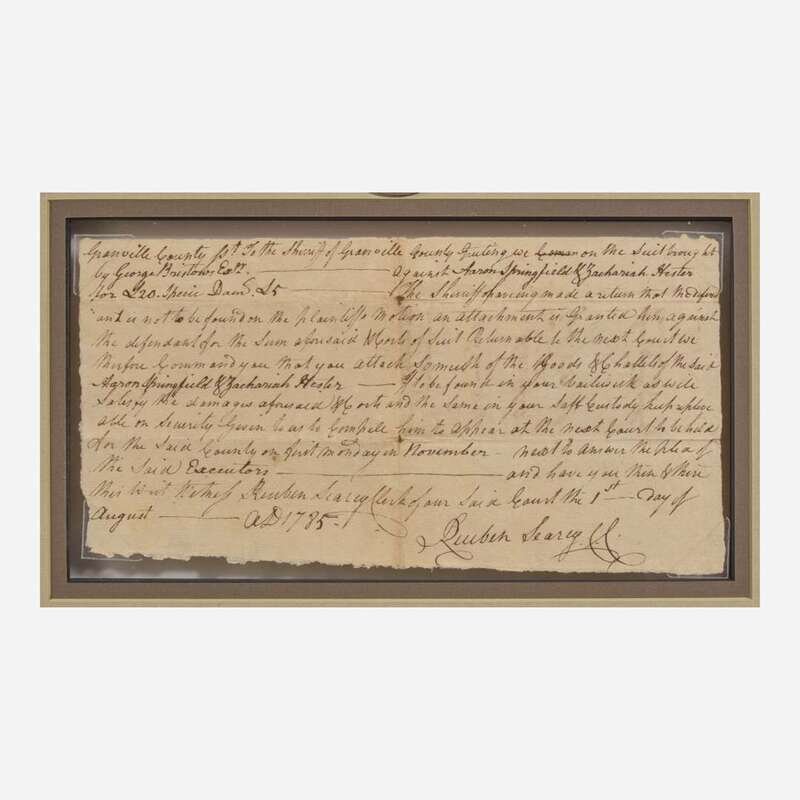 Granville County Sst To the Sheriff of Granville County Greeting we on the Suit brought
by George Bristows Exrs. ——— against Aaron Springfield & Zachariah Hester
for £20. Specie Dam.s £5 The Sheriff having made a return that the defend
ant is not to be found on the plaintiffs Motion an attachment is Granted him against
the defendant for the Sum aforesaid & Costs of Suit Returnable to the next Court we
therfore Command you that you attach So much of the Goods & Chattels of the Said
Aaron Springfield & Zachariah Hester — if to be found in your bailiwick as will
Satisfy the damages aforesaid & Costs and the Same in your Safe Custody keep
able on Security Given to as to Compell him to appear at the next Court to be held
for the Said County on first monday in November — next to answer the plea of
the Said Executors ——— and have you then & there
this Writ Witness Reuben Searcy Clerk of our Said Court the 1st — day of
August ——— AD 1785.
Reuben Searcy CC